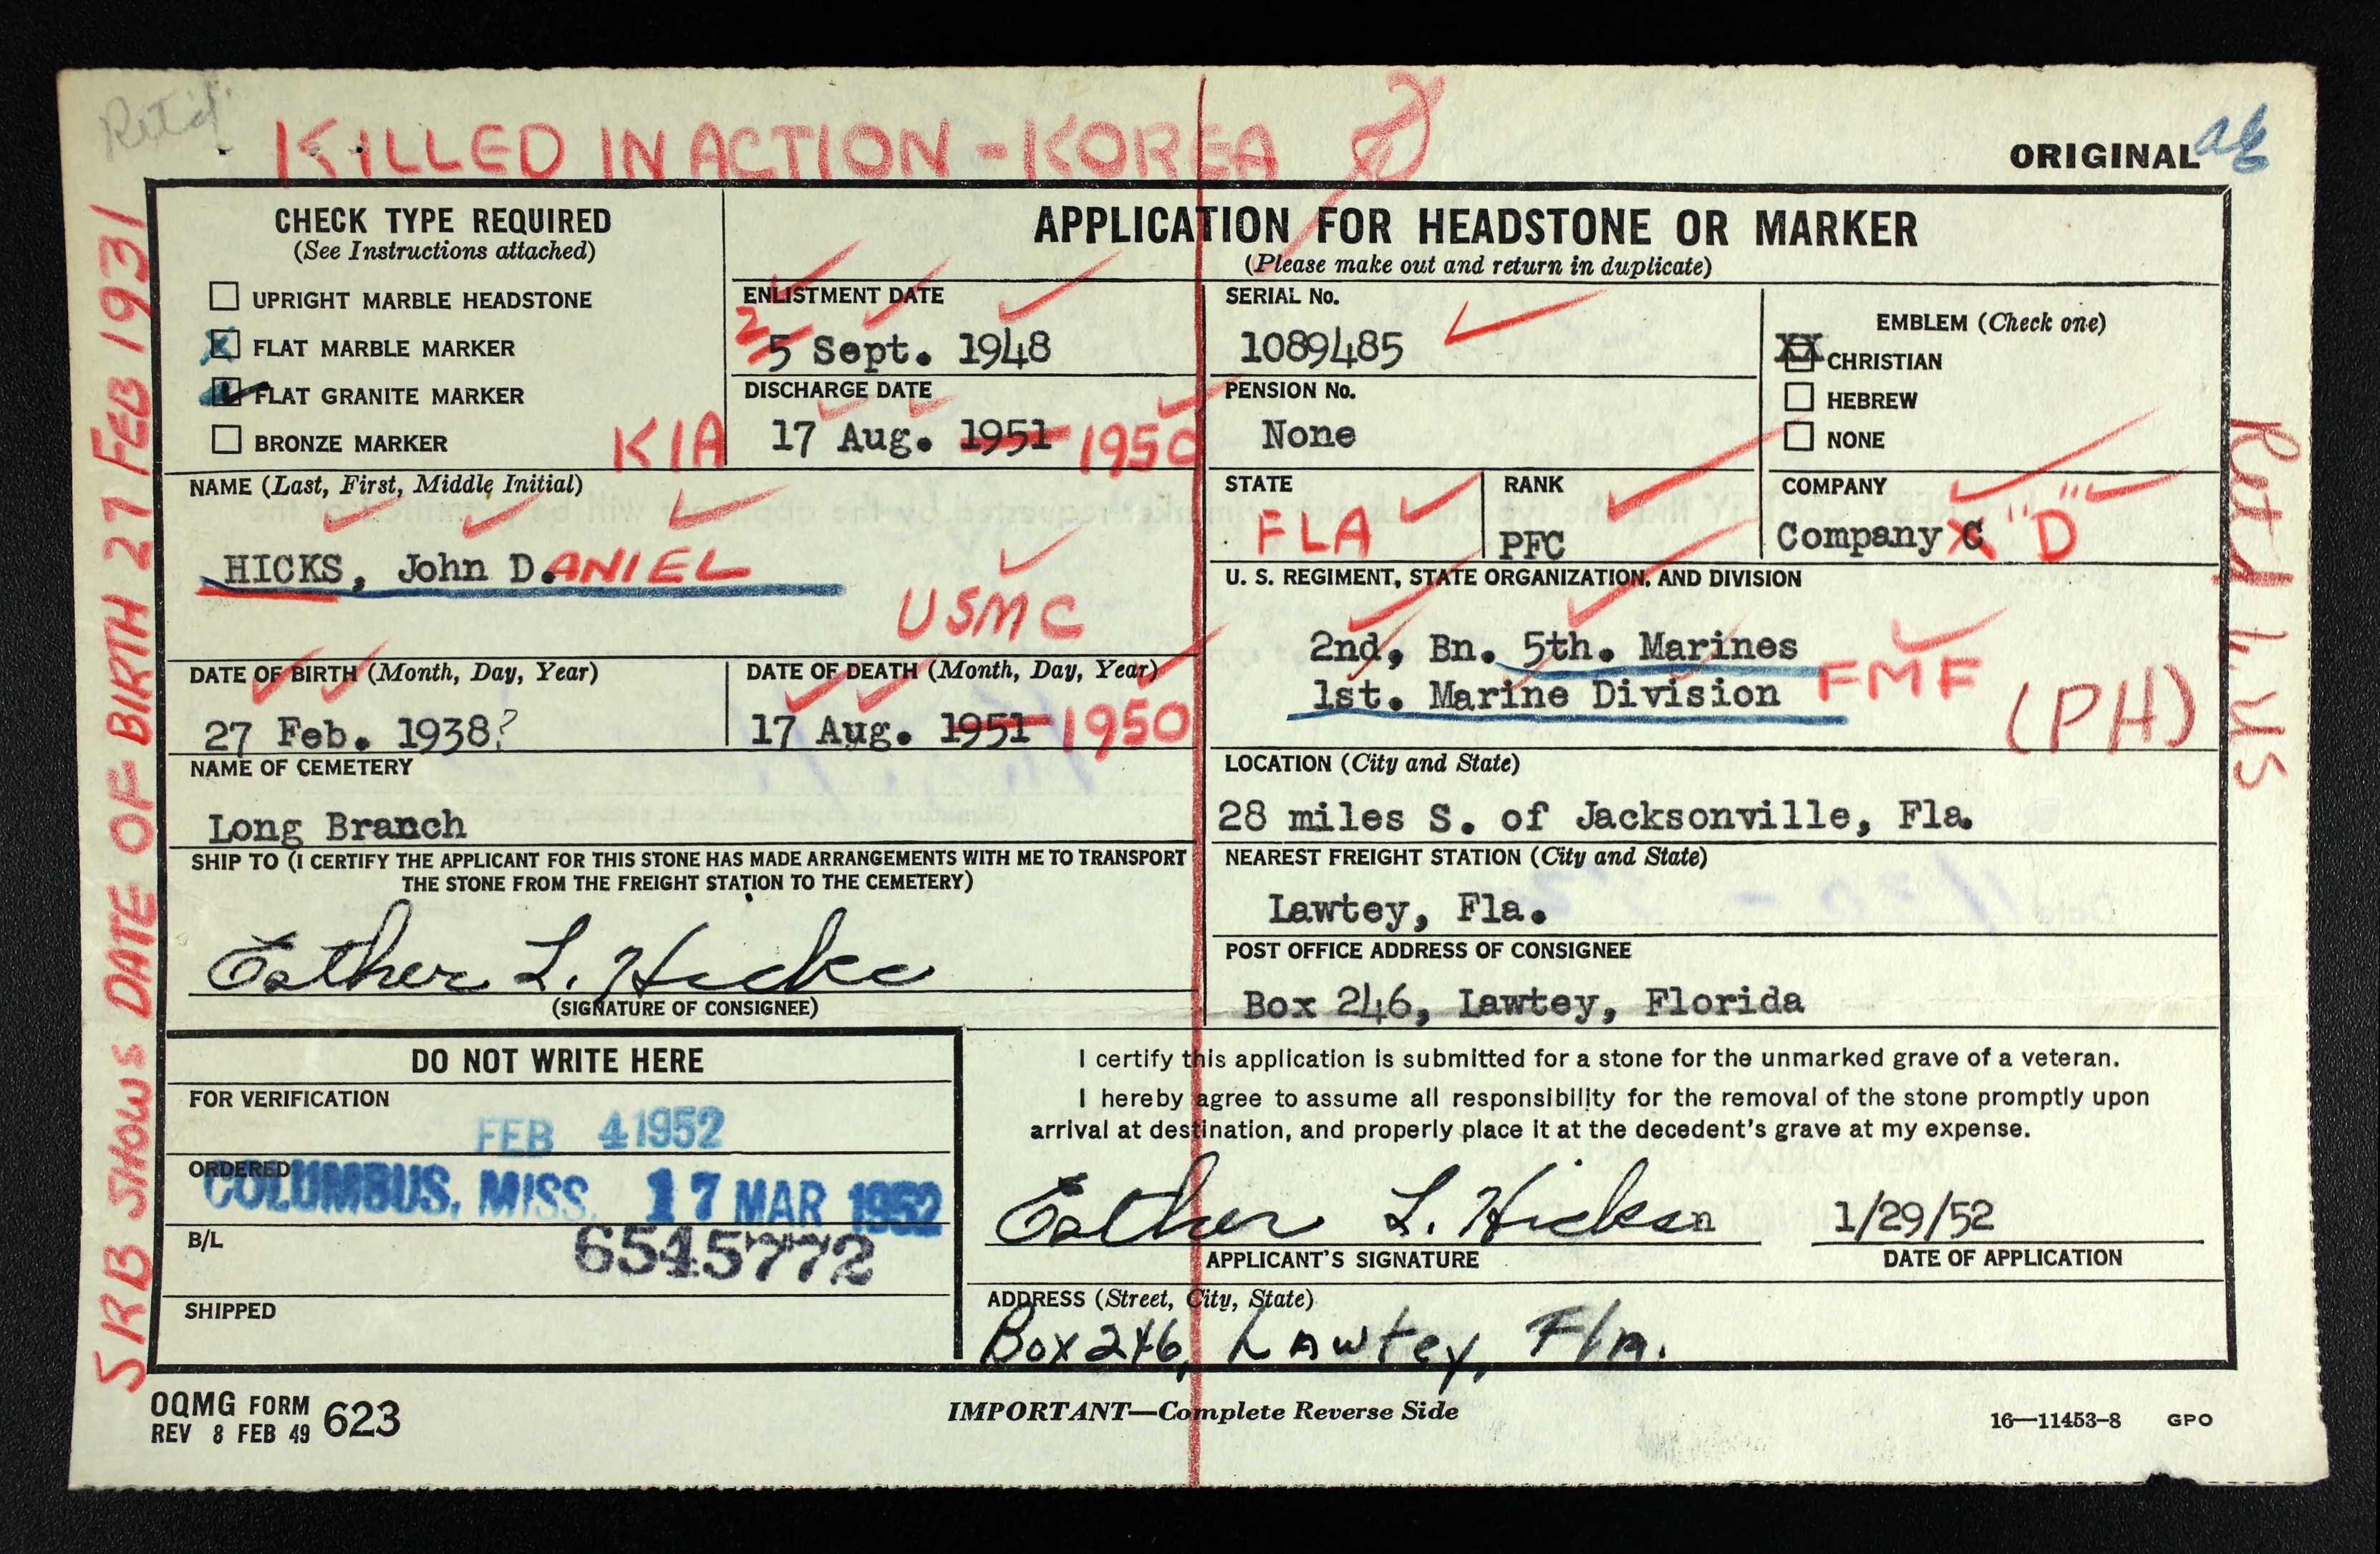 Ret'd.
KILLED IN ACTION - KOREA
ORIGINAL
SRB SHOWS DATE OF BIRTH 27 FEB 1931
CHECK TYPE REQUIRED
(See Instructions attached)
UPRIGHT MARBLE HEADSTONE
X FLAT MARBLE MARKER
FLAT GRANITE MARKER
BRONZE MARKER
KIA
APPLICATION FOR HEADSTONE OR MARKER
(Please make out and return in duplicate)
ENLISTMENT DATE
2 5 Sept. 1948
DISCHARGE DATE
17 Aug. 1951 1950
SERIAL No.
1089485
PENSION No.
None
EMBLEM (Check one)
XX CHRISTIAN
HEBREW
NONE
NAME (Last, First, Middle Initial)
HICKS, John D.ANIEL
USMC
STATE
FLA
RANK
PFC
COMPANY
Company C "D"
U. S. REGIMENT, STATE ORGANIZATION, AND DIVISION
2nd, Bn. 5th. Marines
1st. Marine Division FMF
(PH)
DATE OF BIRTH (Month, Day, Year)
27 Feb. 1938?
DATE OF DEATH (Month, Day, Year)
17 Aug. 1951 1950
NAME OF CEMETERY
Long Branch
LOCATION (City and State)
28 miles S. of Jacksonville, Fla.
SHIP TO (I CERTIFY THE APPLICANT FOR THIS STONE HAS MADE ARRANGEMENTS WITH ME TO TRANSPORT
THE STONE FROM THE FREIGHT STATION TO THE CEMETERY)
Esther L. Hicks
(SIGNATURE OF CONSIGNEE)
NEAREST FREIGHT STATION (City and State)
Lawtey, Fla.
POST OFFICE ADDRESS OF CONSIGNEE
Box 246, Lawtey, Florida
DO NOT WRITE HERE
FOR VERIFICATION
FEB 4 1952
ORDERED
COLUMBUS, MISS. 17 MAR 1952
B/L
6545772
SHIPPED
I certify this application is submitted for a stone for the unmarked grave of a veteran.
I hereby agree to assume all responsibility for the removal of the stone promptly upon
arrival at destination, and properly place it at the decedent's grave at my expense.
Esther L. Hicks
1/29/52
APPLICANT'S SIGNATURE
DATE OF APPLICATION
ADDRESS (Street, City, State)
Box 246, Lawtey, Fla.
OQMG FORM 623
REV 8 FEB 49
IMPORTANT—Complete Reverse Side
16—11453-8 GPO